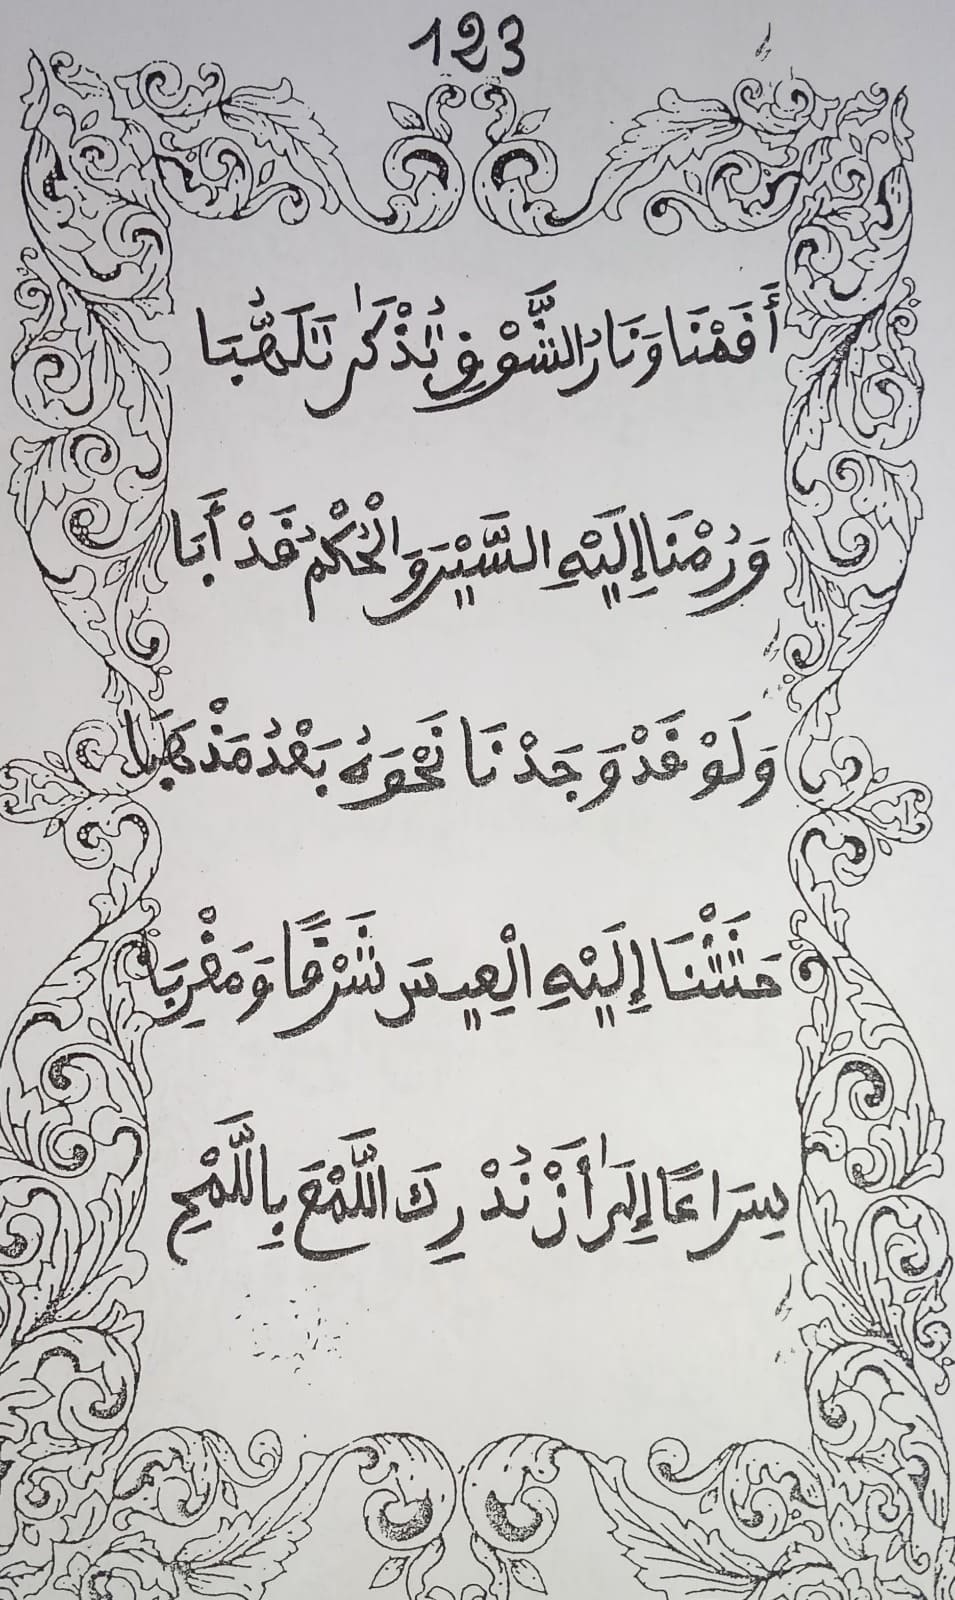 123
أَقَمْنَا وَنَارُ الشَّوْقِ بِالذِّكْرِ تَلَهَّبَا
وَرُمْنَا إِلَيْهِ السَّيْرَ وَالْحُكْمُ قَدْ أَبَا
وَلَوْ قَدْ وَجَدْنَا نَحْوَهُ بَعْدُ مَذْهَبَا
حَثَثْنَا إِلَيْهِ الْعِيسَ شَرْقًا وَمَغْرِبَا
سِرَاعًا إِلَى أَنْ نُدْرِكَ اللَّمْحَ بِاللَّمْحِ